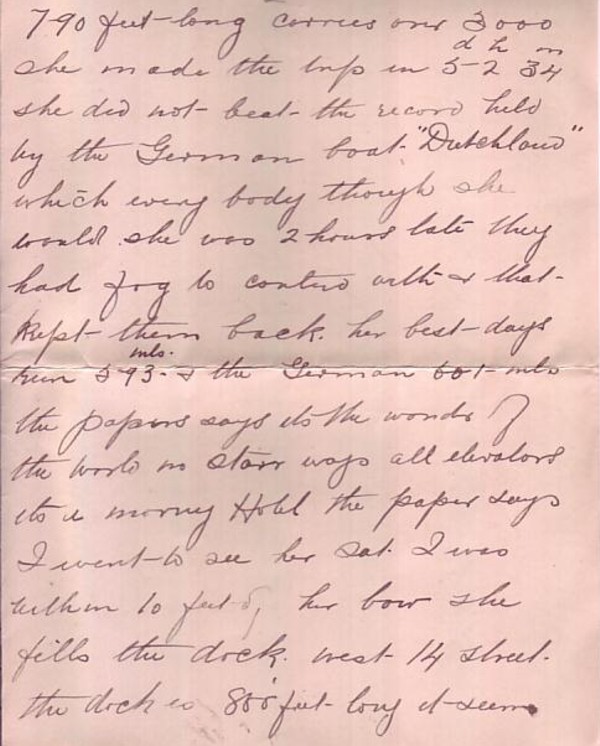 790 feet long carries over 3000
d h m
she made the trip in 5-2 34
she did not beat the record held
by the German boat "Dutchland"
which every body though she
would. she was 2 hours late they
had fog to contend with & that
kept them back. her best days
mls.
run 593. & the German 601 mls
the papers says its the wonder of
the world no stair ways all elevators
its a moving Hotel the paper says
I went to see her Sat. I was
within 10 feet of her bow she
fills the dock. west 14 street.
the dock is 800 feet long it seems